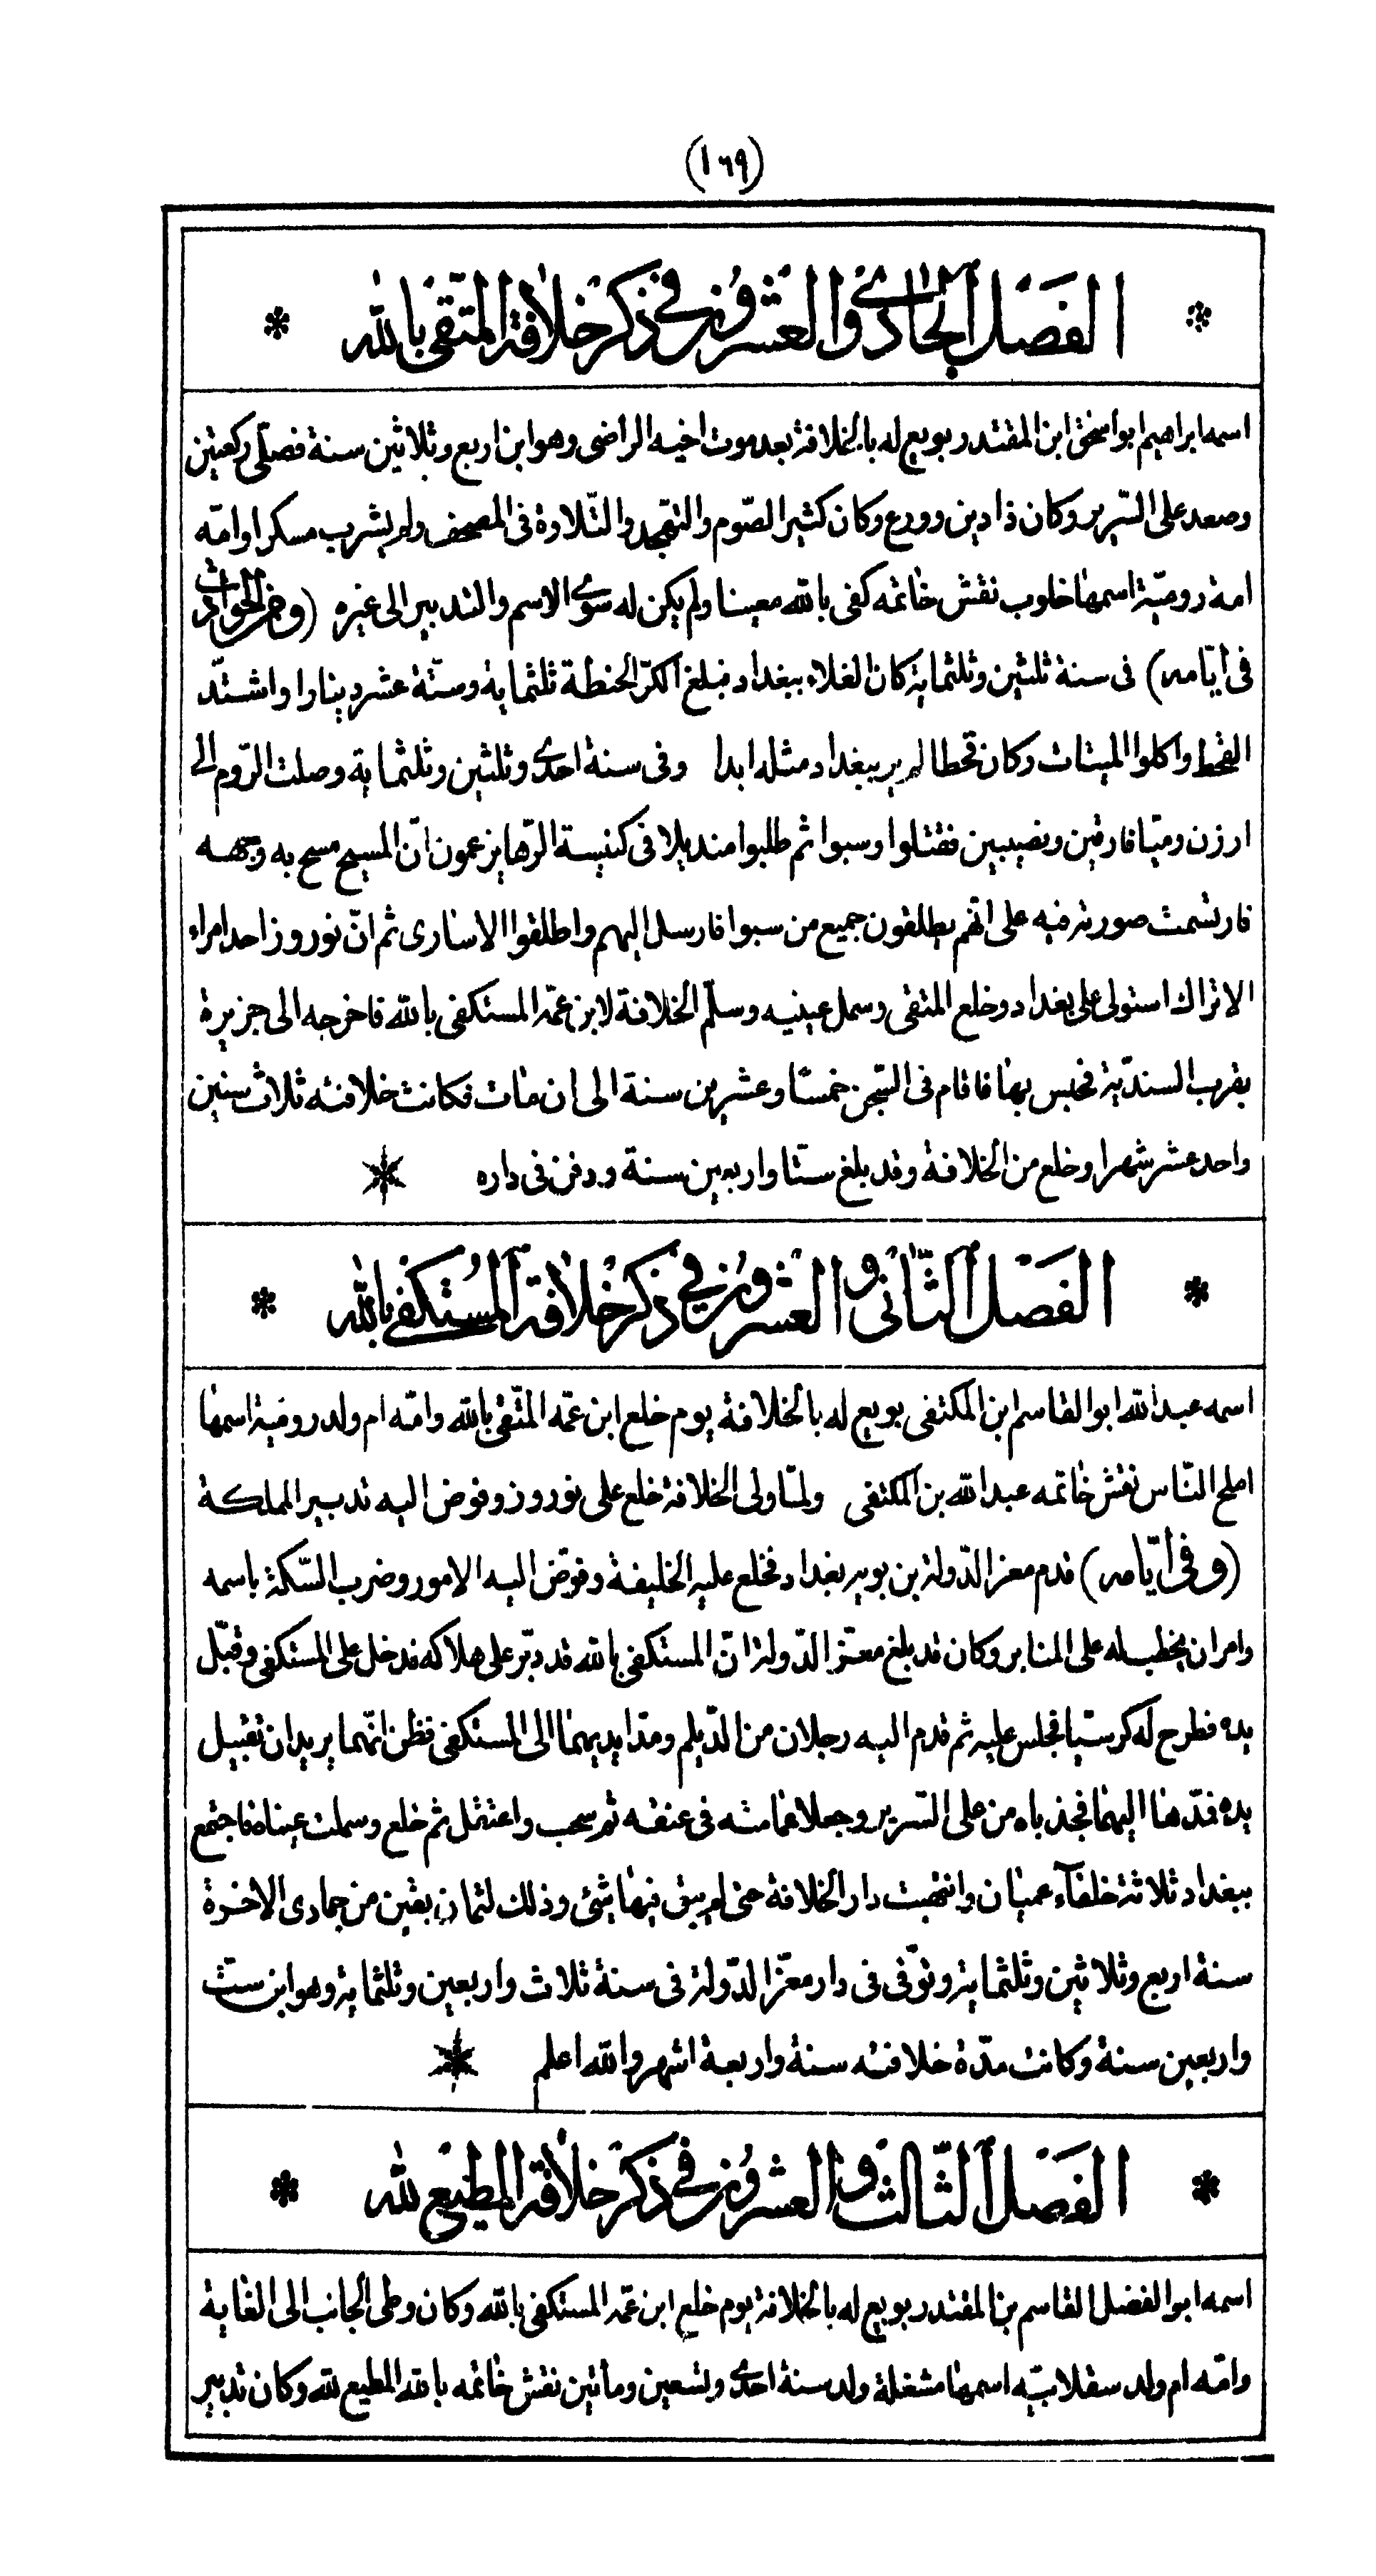 (١٦٩)
* الفصل الحادي والعشرون في ذكر خلافة المتقي بالله *
اسمه ابراهيم ابو اسحق ابن المقتدر بويع له بالخلافة بعد موت اخيه الراضى وهو ابن اربع وثلاثين سنة فصلّى ركعتين
وصعد على السّرير وكان ذا دين وورع وكان كثير الصّوم والتهجد والتّلاوة فى المصحف ولم يشرب مسكرا وامّه
امة روميّة اسمها خلوب نقش خاتمه كفى بالله معينا ولم يكن له سوى الاسم والتدبير الى غيره (ومن الحوادث
فى ايّامه) فى سنة ثلثين وثلثماية كان الغلاء ببغداد فبلغ الكرّ الحنطة ثلثماية وستّة عشر دينارا واشتدّ
القحط واكلوا الميتات وكان قحطا لم ير ببغداد مثله ابدا وفى سنة احدى وثلثين وثلثماية وصلت الرّوم الى
ارزن وميّافارقين ونصيبين فقتلوا وسبوا ثم طلبوا منديلا فى كنيسة الرّها يزعمون انّ المسيح مسح به وجهه
فارتسمت صورته فيه على انّهم يطلقون جميع من سبوا فارسل اليهم واطلقوا الاسارى ثم انّ نوروز احد امراء
الاتراك استولى على بغداد وخلع المتقى وسمل عينيه وسلّم الخلافة لابن عمّه المستكفى بالله فاخرجه الى جزيرة
بقرب السنديّة فحبس بها فاقام فى السّجن خمسا وعشرين سنة الى ان مات فكانت خلافته ثلاث سنين
واحد عشر شهرا وخلع من الخلافة وقد بلغ ستّا واربعين سنة ودفن فى داره *
* الفصل الثّاني والعشرون في ذكر خلافة المستكفي بالله *
اسمه عبد الله ابو القاسم ابن المكتفى بويع له بالخلافة يوم خلع ابن عمّه المتّقى بالله وامّه ام ولد روميّة اسمها
املح النّاس نقش خاتمه عبد الله بن المكتفى ولمّا ولى الخلافة خلع على نوروز وفوض اليه تدبير المملكة
(وفى ايّامه) قدم معز الدّولة بن بويه بغداد فخلع عليه الخليفة وفوّض اليه الامور وضرب السّكة باسمه
وامر ان يخطب له على المنابر وكان قد بلغ معزّ الدّولة انّ المستكفى بالله قد دبّر على هلاكه فدخل على المستكفى وقبّل
يده فطرح له كرسيّا فجلس عليه ثم قدم اليه رجلان من الدّيلم ومدّا يديهما الى المستكفى فظن انّهما يريدان تقبيل
يده فمدّها اليهما فجذباه من على السّرير وجعلا عمامته فى عنقه ثم سحب واعتقل ثم خلع وسملت عيناه فاجتمع
ببغداد ثلاثة خلفآء عميان وانتهبت دار الخلافة حتى لم يبق فيها شئ وذلك لثمان بقين من جمادى الاخرة
سنة اربع وثلاثين وثلثماية وتوفّى فى دار معزّ الدّولة فى سنة ثلاث واربعين وثلثماية وهو ابن ستّ
واربعين سنة وكانت مدّة خلافته سنة واربعة اشهر والله اعلم *
* الفصل الثّالث والعشرون في ذكر خلافة المطيع لله *
اسمه ابو الفضل القاسم بن المقتدر بويع له بالخلافة يوم خلع ابن عمّه المستكفى بالله وكان وطى الجانب الى الغاية
وامّه ام ولد سقلابيّه اسمها مشغلة ولد سنة احدى وتسعين ومأتين نقش خاتمه بالله المطيع لله وكان تدبير